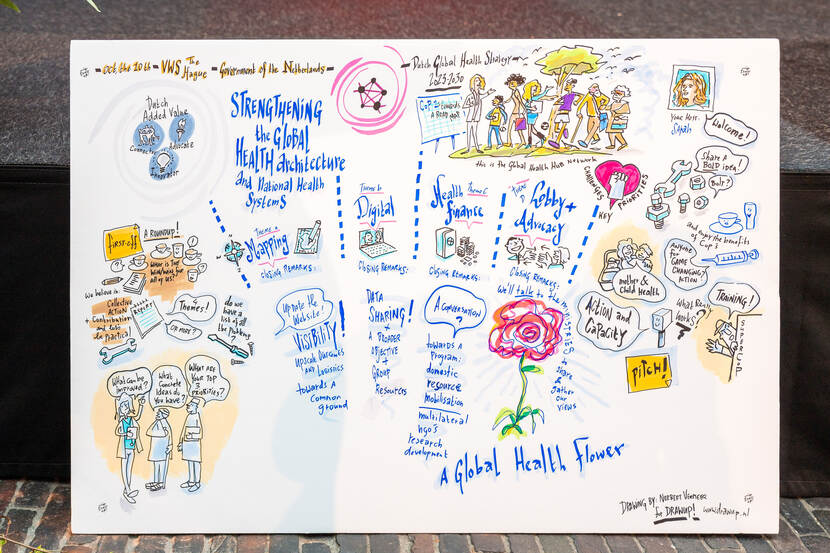 Oct the 10th - VWS The Hague - Government of the Netherlands
Dutch Global Health Strategy
2023-2030
Dutch
Added Value
Connector
Advocate
Innovator
STRENGTHENING
the GLOBAL
HEALTH architecture
and National Health
Systems
CoP's towards
a BOLD goal
this is the Global Health Hub Network
Your Host:
Sarah
Welcome!
Share a
BOLD idea!
Bolt?
and enjoy the benefits
of Cup's
CHALLENGES
KEY PRIORITIES
Theme A
Mapping
CLOSING REMARKS:
Theme B
Digital
CLOSING REMARKS:
Theme C
Health
Finance
CLOSING REMARKS:
Theme D
Lobby +
Advocacy
CLOSING REMARKS:
we'll talk to the
to share &
gather our
views
first-off
A ROUNDUP!
What is the
for all
of us!
We believe in:
Collective
ACTION
+ Contribution
Practical
Report
4
Themes!
OR MORE?
do we
have a
list of all
the Funding
?
What can be
improved?
What
Concrete
Ideas do
you have?
What are
your top
3
PRIORITIES?
Update the
Website!
VISIBILITY!
Upscale Outcomes
And Logistics
towards a
Common
ground
DATA
SHARING!
+
A BROADER
objective
+
Group
Resources
A CONVERSATION
towards a
Program:
domestic
resource
mobilisation
multilateral
ngo's
research
development
A Global Health Flower
mother &
Child Health
Anyone
for
GAME
CHANGING?
ACTION
Action and
Capacity
What Really
works?
TRAINING!
PITCH!
DRAWING BY:
for DRAWUP!
www.drawup.nl